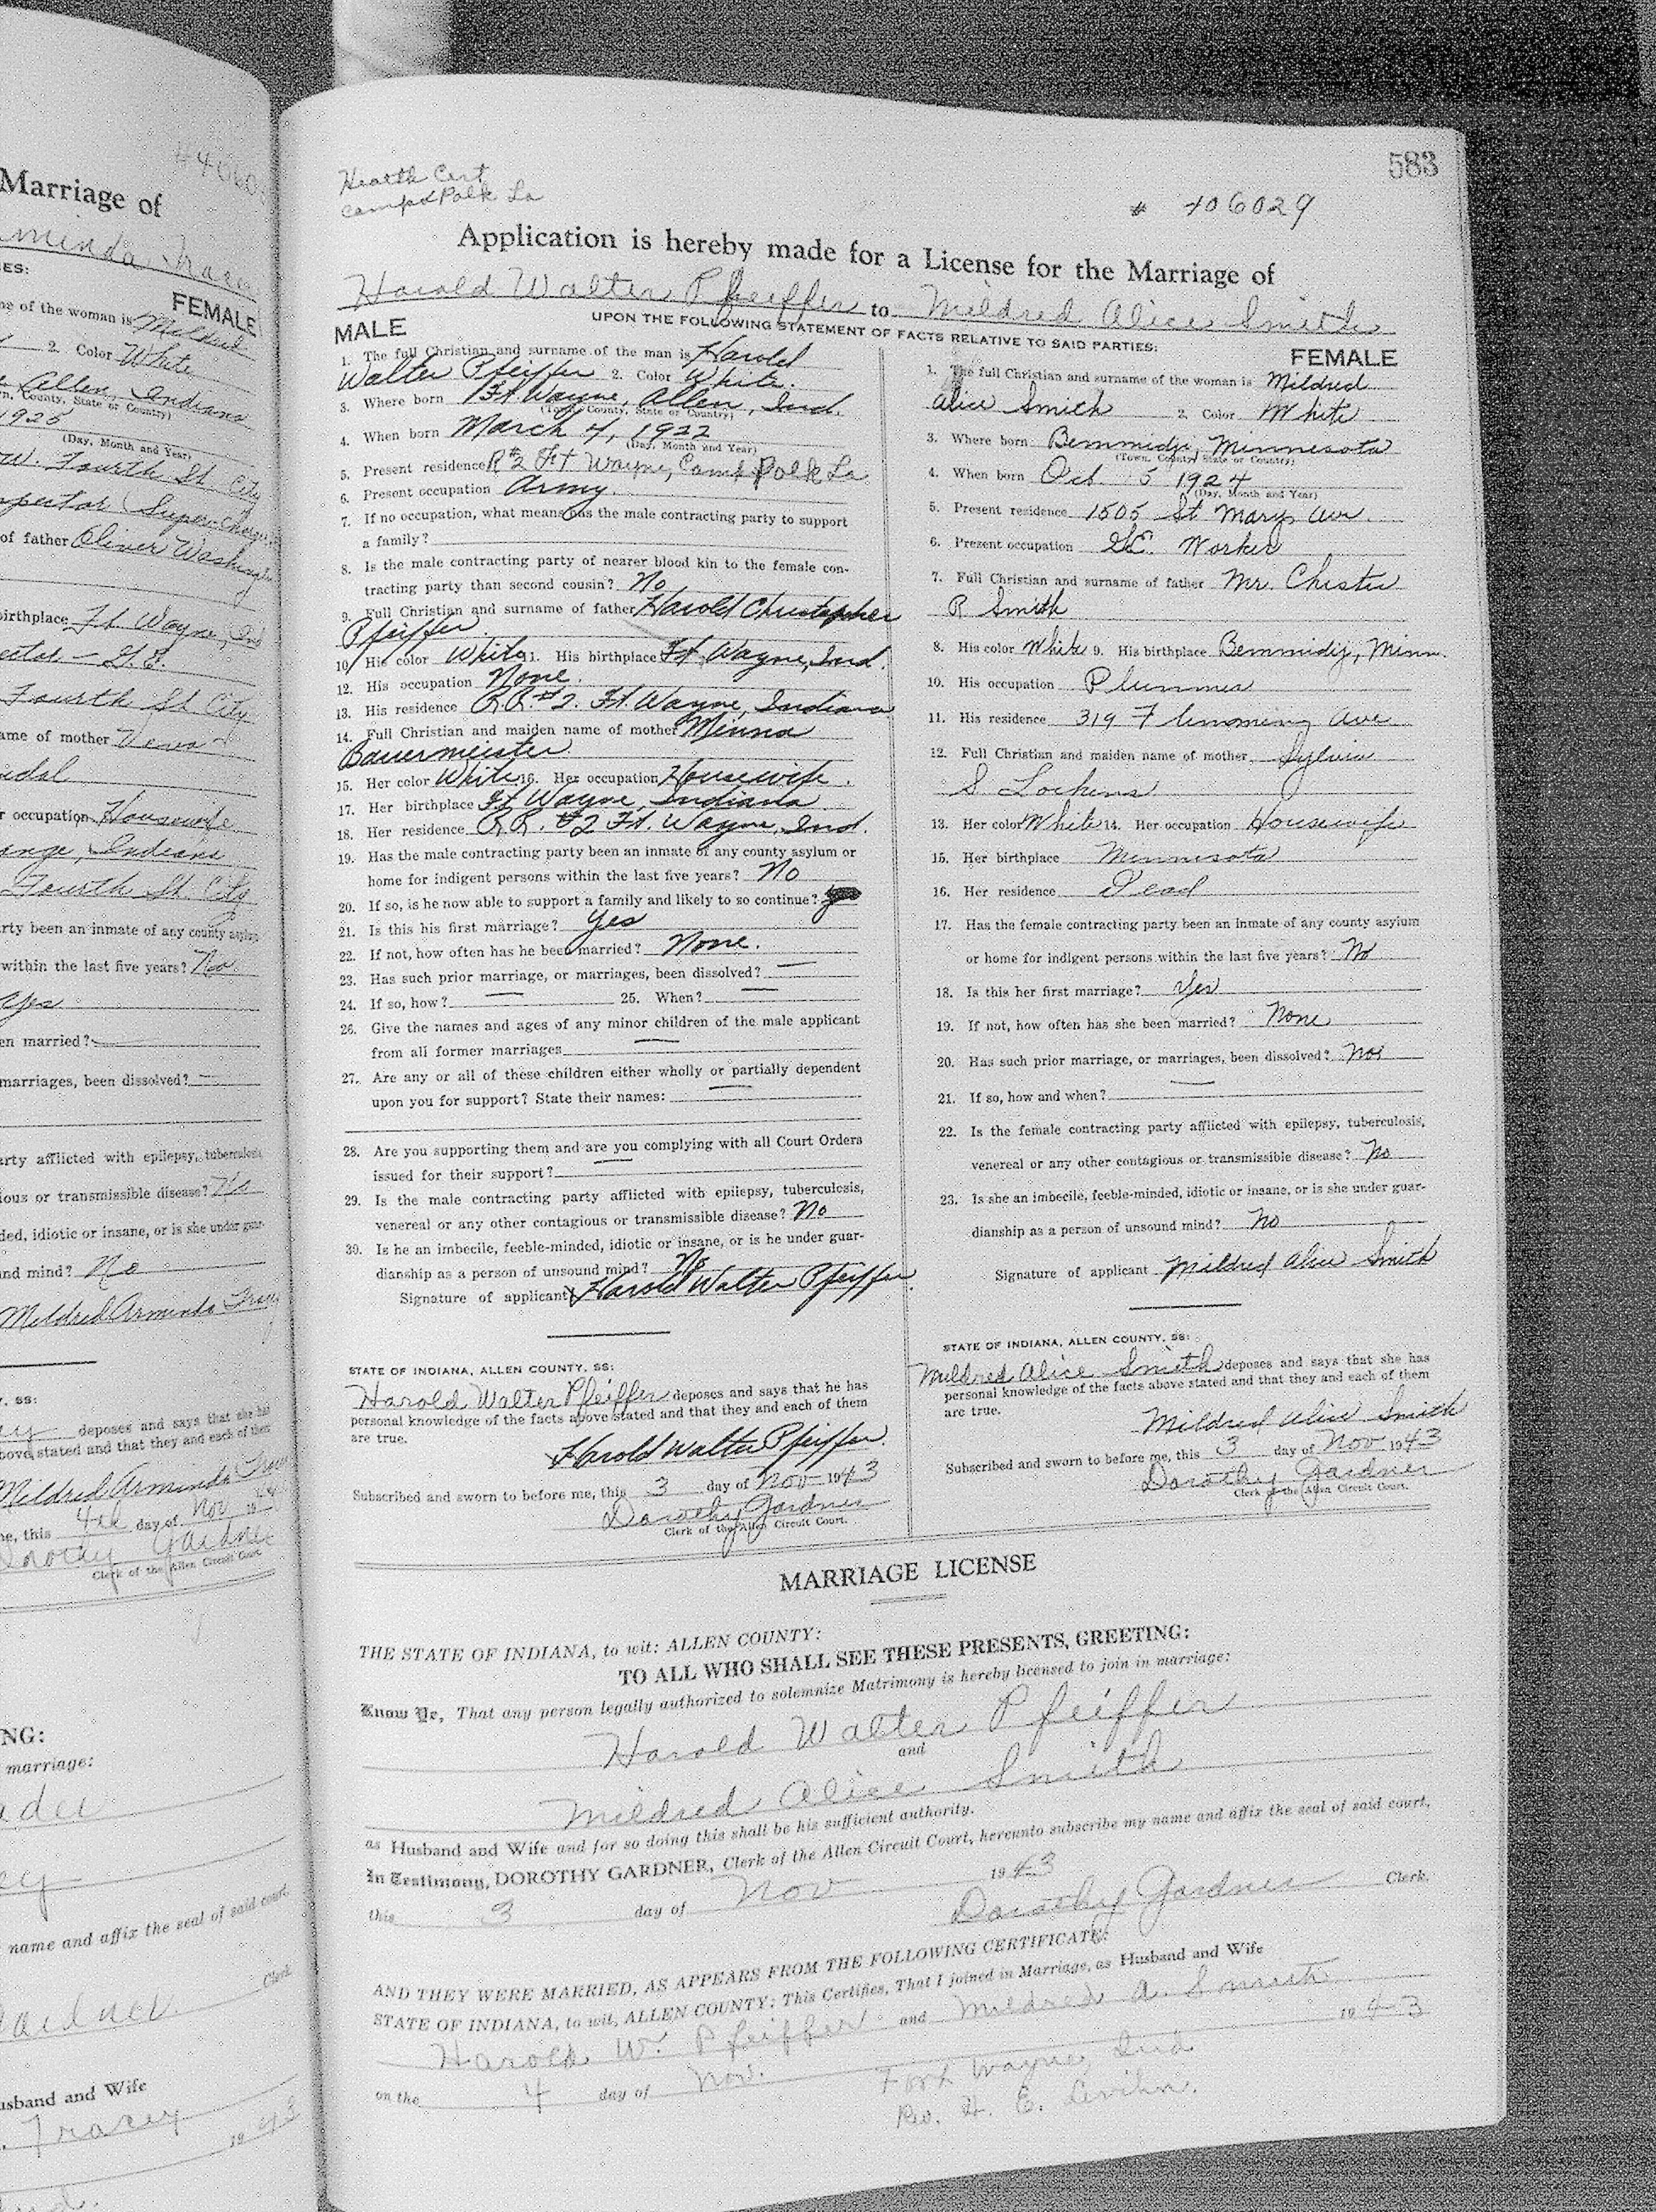 Marriage of
FEMALE
me of the woman is Mildred
2. Color White
Allen, Indiana
(Day, Month and Year)
W. Fourth St. City
of father Oliver Washing
birthplace Ft. Wayne, Ind
Fourth St City
ame of mother
r occupation Housewife
ange, Indiana
Fourth St. City
rty been an inmate of any county asylum
within the last five years? No
Yes
en married?
marriages, been dissolved?
arty afflicted with epilepsy, tuberculosis
ious or transmissible disease? No
ded, idiotic or insane, or is she under guar-
nd mind? No
Mildred Arminda
deposes and says that she has
bove stated and that they and each of them
Mildred Arminda
e, this 4th day of Nov
Dorothy Gardner
Clerk of the Allen Circuit Court.
NG:
marriage:
name and affix the seal of said court
Clerk
usband and Wife
Tracey
583
Health Cert
Camp Polk La
# 406029
Application is hereby made for a License for the Marriage of
Harold Walter Pfeiffer to Mildred Alice Smith
UPON THE FOLLOWING STATEMENT OF FACTS RELATIVE TO SAID PARTIES:
MALE
1. The full Christian and surname of the man is Harold
Walter Pfeiffer 2. Color White.
3. Where born Ft. Wayne, Allen, Ind.
(Town, County, State or Country)
4. When born March 4, 1922
(Day, Month and Year)
5. Present residence R#2 Ft Wayne, Camp Polk La
6. Present occupation Army.
7. If no occupation, what means has the male contracting party to support
a family?
8. Is the male contracting party of nearer blood kin to the female con-
tracting party than second cousin? No
9. Full Christian and surname of father Harold Christopher
Pfeiffer
10. His color White 11. His birthplace Ft. Wayne, Ind.
12. His occupation None.
13. His residence R.R. #2. Ft. Wayne, Indiana
14. Full Christian and maiden name of mother Minna
Bauermeister
15. Her color White 16. Her occupation Housewife.
17. Her birthplace Ft Wayne, Indiana
18. Her residence R.R. #2 Ft. Wayne, Ind.
19. Has the male contracting party been an inmate of any county asylum or
home for indigent persons within the last five years? No
20. If so, is he now able to support a family and likely to so continue?
21. Is this his first marriage? Yes
22. If not, how often has he been married? None.
23. Has such prior marriage, or marriages, been dissolved? —
24. If so, how? — 25. When? —
26. Give the names and ages of any minor children of the male applicant
from all former marriages —
27. Are any or all of these children either wholly or partially dependent
upon you for support? State their names: —
28. Are you supporting them and are you complying with all Court Orders
issued for their support? —
29. Is the male contracting party afflicted with epilepsy, tuberculosis,
venereal or any other contagious or transmissible disease? No
30. Is he an imbecile, feeble-minded, idiotic or insane, or is he under guar-
dianship as a person of unsound mind? No
Signature of applicant x Harold Walter Pfeiffer
STATE OF INDIANA, ALLEN COUNTY, SS:
Harold Walter Pfeiffer deposes and says that he has
personal knowledge of the facts above stated and that they and each of them
are true.
x Harold Walter Pfeiffer
Subscribed and sworn to before me, this 3 day of Nov 1943
Dorothy Gardner
Clerk of the Allen Circuit Court.
FEMALE
1. The full Christian and surname of the woman is Mildred
Alice Smith 2. Color White
3. Where born Bemmidji, Minnesota
(Town, County, State or Country)
4. When born Oct 5 1924
(Day, Month and Year)
5. Present residence 1505 St Marys Ave.
6. Present occupation G.E. Worker
7. Full Christian and surname of father Mr. Chester
R Smith
8. His color White 9. His birthplace Bemmidij, Minn.
10. His occupation Plummer
11. His residence 319 Flemming Ave
12. Full Christian and maiden name of mother Sylvia
S Lockens
13. Her color White 14. Her occupation Housewife
15. Her birthplace Minnesota
16. Her residence Dead
17. Has the female contracting party been an inmate of any county asylum
or home for indigent persons within the last five years? No
18. Is this her first marriage? Yes
19. If not, how often has she been married? None
20. Has such prior marriage, or marriages, been dissolved?
21. If so, how and when? —
22. Is the female contracting party afflicted with epilepsy, tuberculosis,
venereal or any other contagious or transmissible disease? No
23. Is she an imbecile, feeble-minded, idiotic or insane, or is she under guar-
dianship as a person of unsound mind? No
Signature of applicant Mildred Alice Smith
STATE OF INDIANA, ALLEN COUNTY, SS:
Mildred Alice Smith deposes and says that she has
personal knowledge of the facts above stated and that they and each of them
are true.
Mildred Alice Smith
Subscribed and sworn to before me, this 3 day of Nov 1943
Dorothy Gardner
Clerk of the Allen Circuit Court.
MARRIAGE LICENSE
THE STATE OF INDIANA, to wit: ALLEN COUNTY:
TO ALL WHO SHALL SEE THESE PRESENTS, GREETING:
Know Ye, That any person legally authorized to solemnize Matrimony is hereby licensed to join in marriage:
Harold Walter Pfeiffer
and
Mildred Alice Smith
as Husband and Wife and for so doing this shall be his sufficient authority.
In Testimony, DOROTHY GARDNER, Clerk of the Allen Circuit Court, hereunto subscribe my name and affix the seal of said court,
this 3 day of Nov 1943
Dorothy Gardner Clerk.
AND THEY WERE MARRIED, AS APPEARS FROM THE FOLLOWING CERTIFICATE:
STATE OF INDIANA, to wit, ALLEN COUNTY: This Certifies, That I joined in Marriage, as Husband and Wife
Harold W. Pfeiffer and Mildred A. Smith
on the 4 day of Nov. 1943
Fort Wayne, Ind
Rev. H. E.